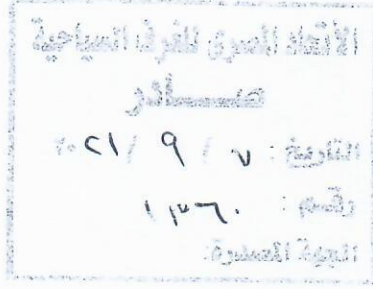 الاتحاد المصري للغرف السياحية
صــــادر
التاريخ : ٧ / ٩ / ٢٠٢١
رقم : ١٣٦٠
الجهة المرسلة: